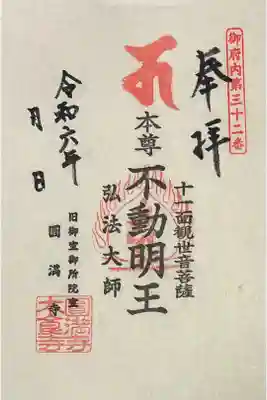 御府内第三十二番
奉拝
十一面観世音菩薩
本尊 不動明王
弘法大師
令和六年
月 日
旧御室御所院室
圓満寺